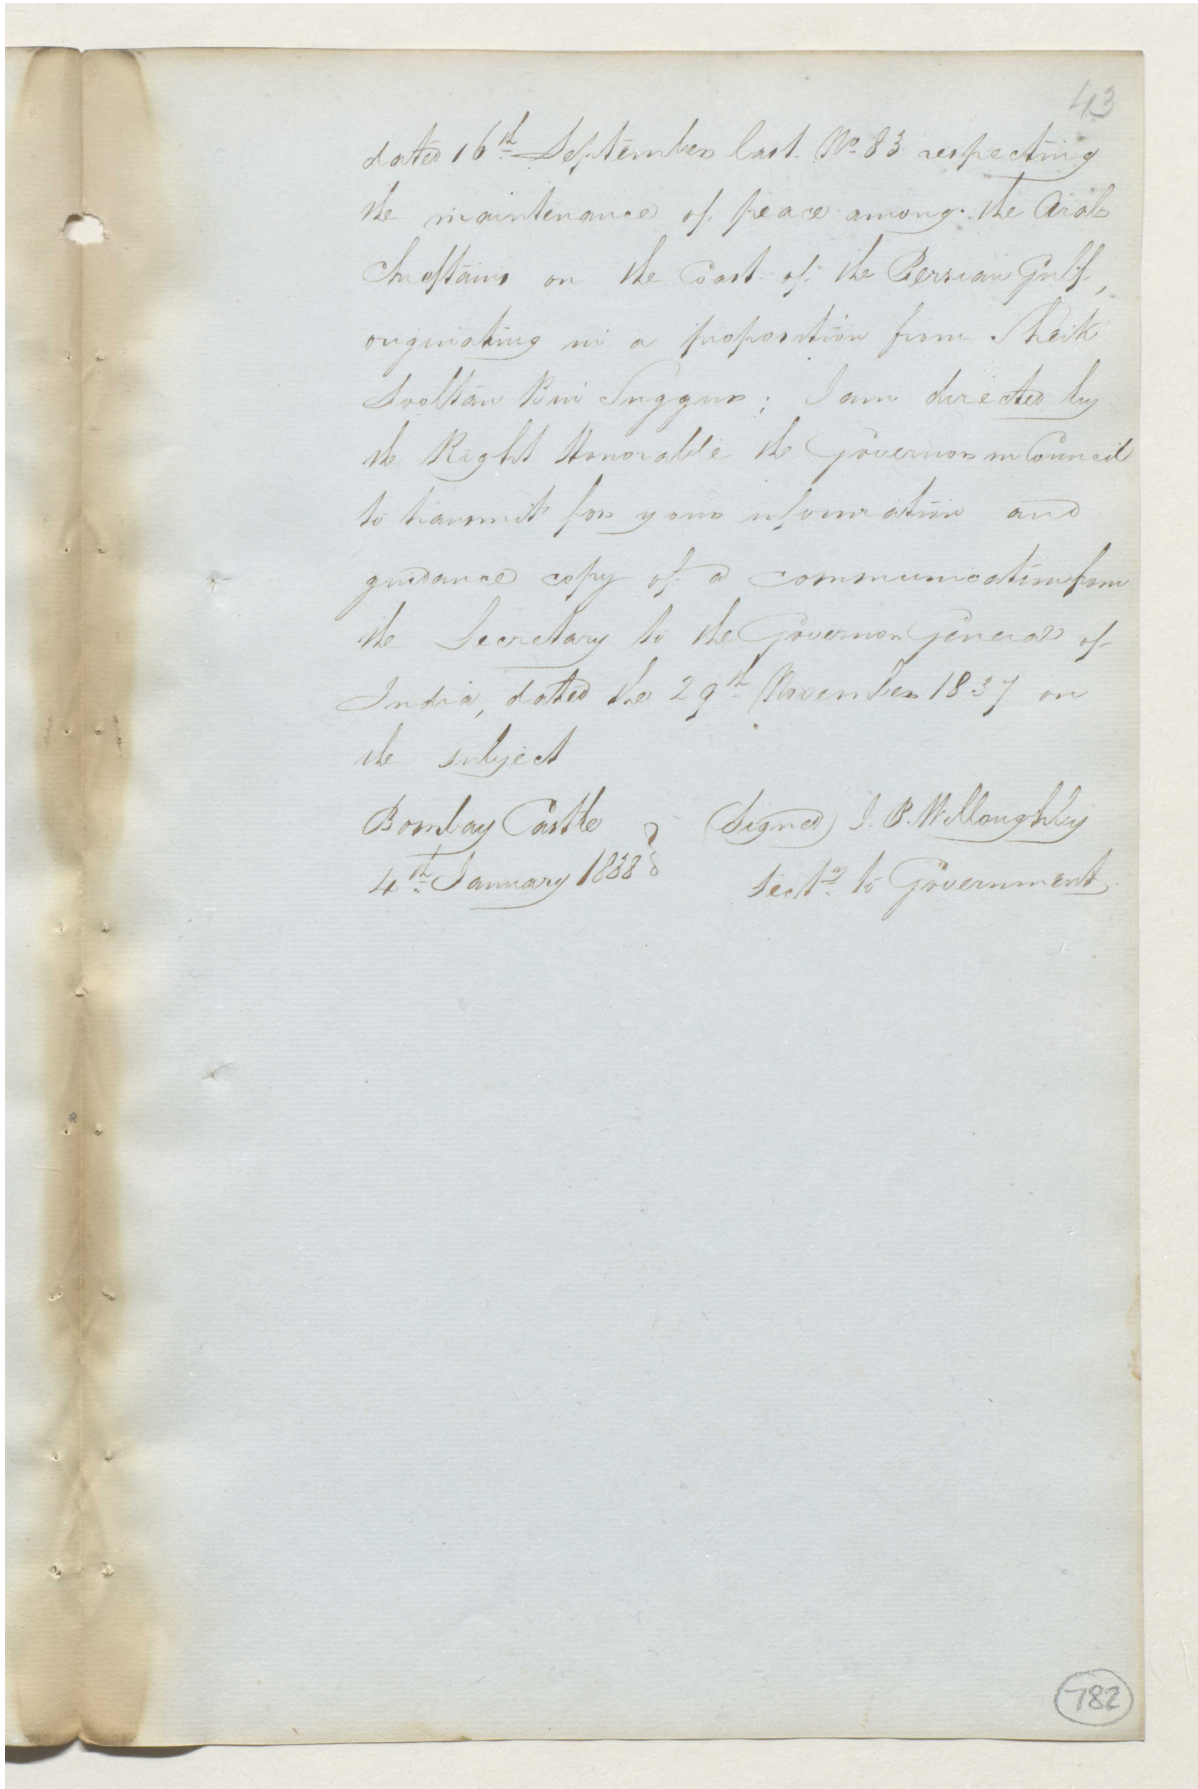 43
dated 16th September last No 83 respecting
the maintenance of peace among the Arab
Chieftains on the Coast of the Persian Gulf,
originating in a proposition from Sheik
Sooltan Bin Suggur; I am directed by
the Right Honorable the Governor in Council
to transmit for your information and
guidance copy of a communication from
the Secretary to the Governor General of
India, dated the 29th November 1837 on
the subject
Bombay Castle (Signed) J. P. Willoughby
4th January 1838 Secty to Government
782